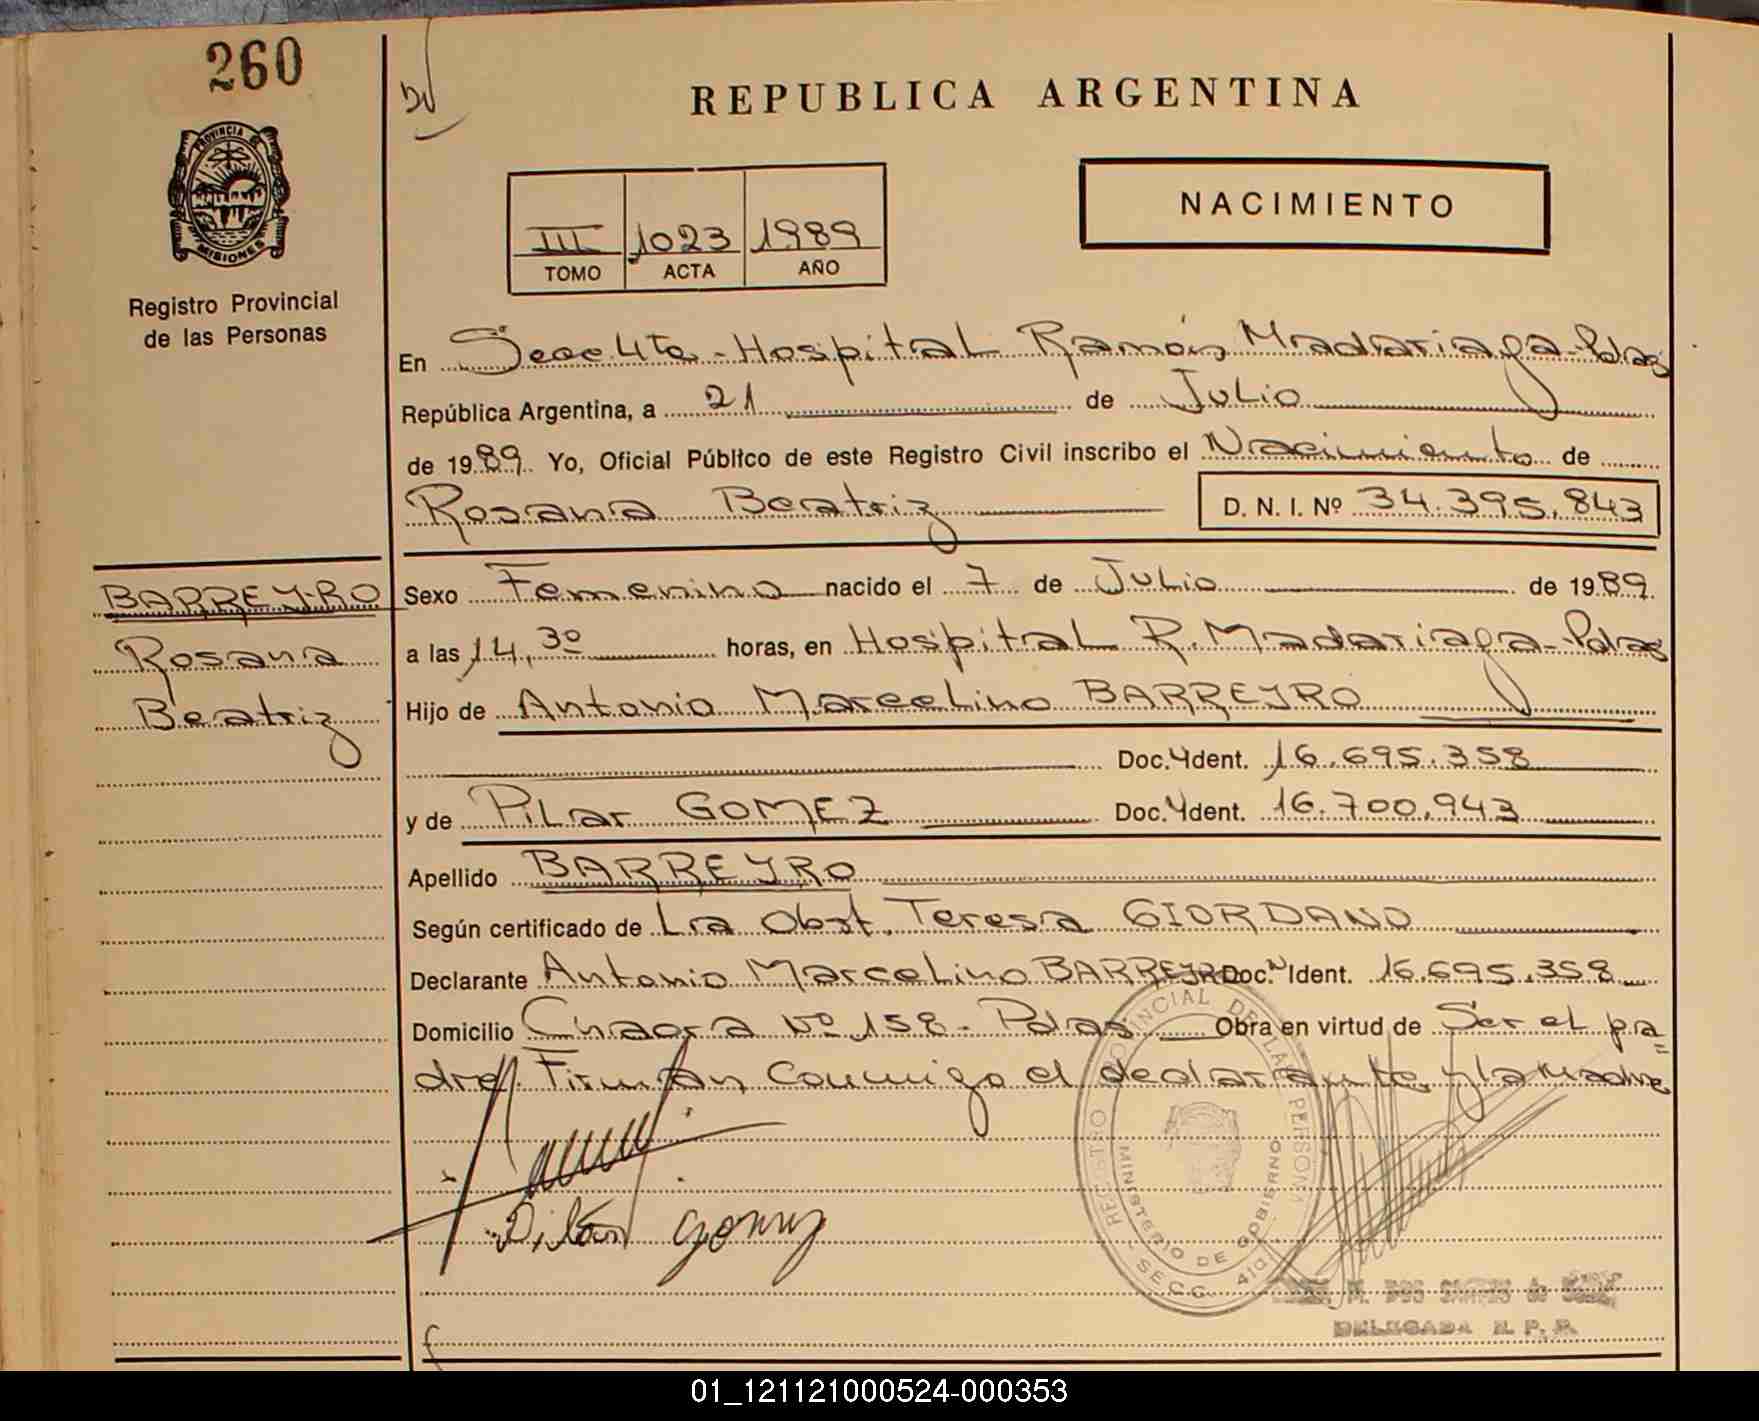 260
REPUBLICA ARGENTINA
PROVINCIA DE
MISIONES
Registro Provincial
de las Personas
III 1023 1989
TOMO ACTA AÑO
NACIMIENTO
En Secc 4ta - Hospital Ramón Madariaga - Pdas
República Argentina, a 21 de Julio
de 1989. Yo, Oficial Público de este Registro Civil inscribo el Nacimiento de
Rosana Beatriz D. N. I. Nº 34.395.843
BARREYRO
Rosana
Beatriz
Sexo Femenino nacido el 7 de Julio de 1989.
a las 14,30 horas, en Hospital R. Madariaga - Pdas
Hijo de Antonio Marcelino BARREYRO
Doc. Ydent. 16.695.358
y de Pilar GOMEZ Doc. Ydent. 16.700.943
Apellido BARREYRO
Según certificado de Lra Obst. Teresa GIORDANO
Declarante Antonio Marcelino BARREYRO Doc. Ident. 16.695.358
Domicilio Chacra Nº 158 - Pdas Obra en virtud de Ser el pa
dre. Firman Conmigo el declarante y la madre
Pilar Gomez
REGISTRO PROVINCIAL DE LAS PERSONAS
MINISTERIO DE GOBIERNO
SECC. 4ta
M. DOS SANTOS de
DELEGADA R. P. P.
01_121121000524-000353